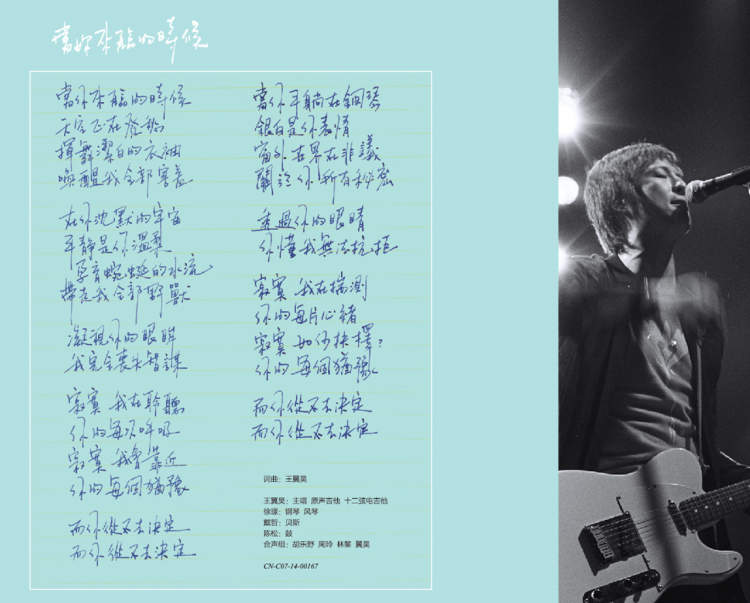 當你來臨的時候
當你來臨的時候
天空正在發
揮舞潔白的衣袖
喚醒我全部害羞
在你沈默的宇宙
平靜是你溫柔
孕育蜿蜒的水流
帶走我全部野獸
凝視你的眼眸
我完全喪失智謀
寂寞 我在聆聽
你的每次呼吸
寂寞 我會靠近
你的每個猶豫
而你從不去決定
而你從不去決定
當你平躺在鋼琴
銀白是你表情
窗外世界在非議
關於你所有秘密
透過你的眼睛
你懂我無法抗拒
寂寞 我在揣測
你的每片心緒
寂寞 如何抉擇?
你的每個猶豫
而你從不去決定
而你從不去決定
词曲：王翼昊
王翼昊：主唱 原声吉他 十二弦电吉他
徐璟：钢琴 风琴
戴哲：贝斯
陈松：鼓
合声组：胡乐野 周玲 林黎 翼昊
CN-C07-14-00167